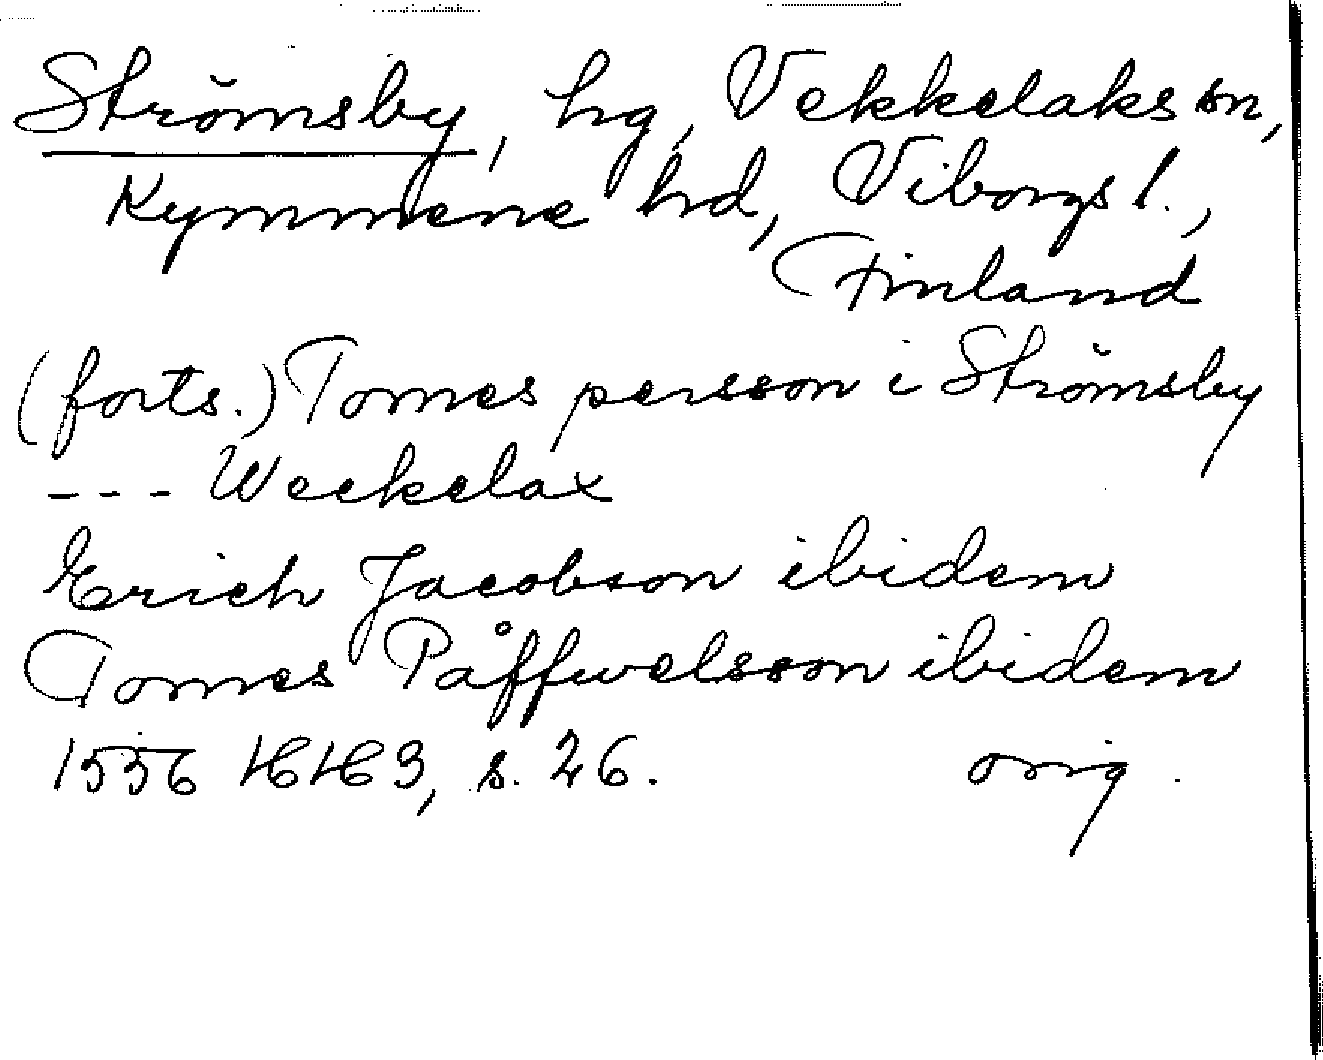 Strömsby, hg, Vekkelaks sn,
Kymmene hd, Viborgs l.,
Finland
(forts.) Tomes persson i Strömsby
--- Weckelax
Erich Jacobson ibidem
Tomes Påffwelsson ibidem
1556 HH3, s. 26. orig.